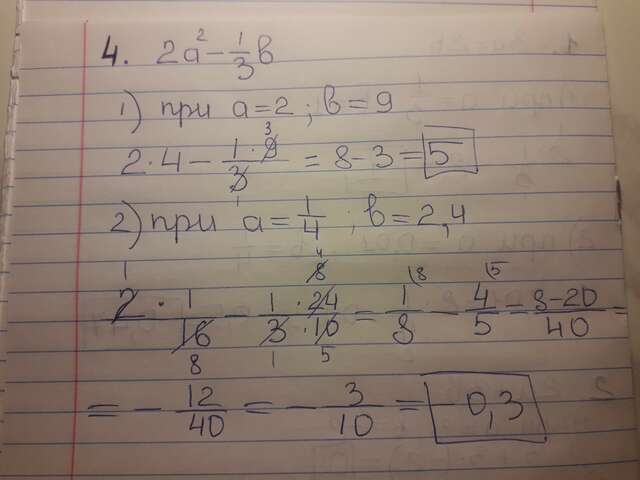 4. 2a² − 1/3 в
1) при a=2; в=9
2·4 − 1·9/3 = 8−3 = 5
2) при a=1/4; в=2,4
2·1/16 − 1·24/3·10 = 1/8 − 4/5 = 8−20/40 =
= −12/40 = −3/10 = −0,3